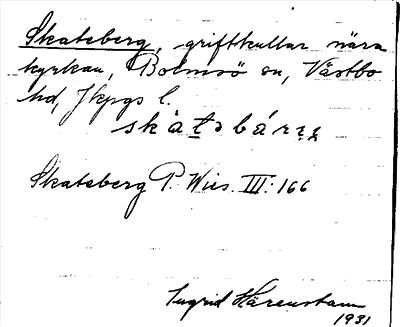 Skatsberg, griftkullar nära
kyrkan, Bolmsö sn, Västbo
hd, Jkpgs l.
skàtsbárɳ
Skatsberg P. Wies. III: 166
Ingrid Härenstam
1931